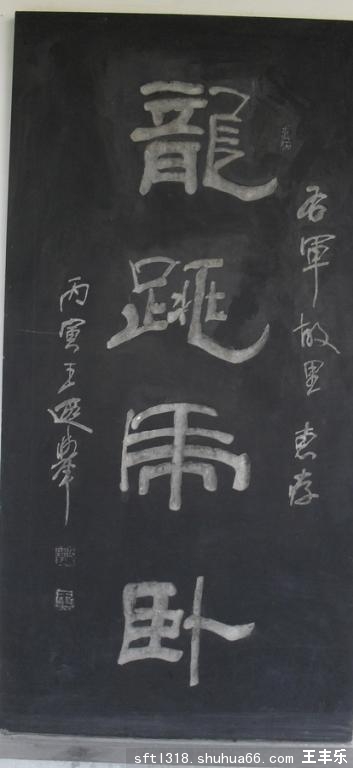 右軍故里惠存
龍跳虎卧
丙寅王遐舉
sftl318.shuhua66.com 王丰乐